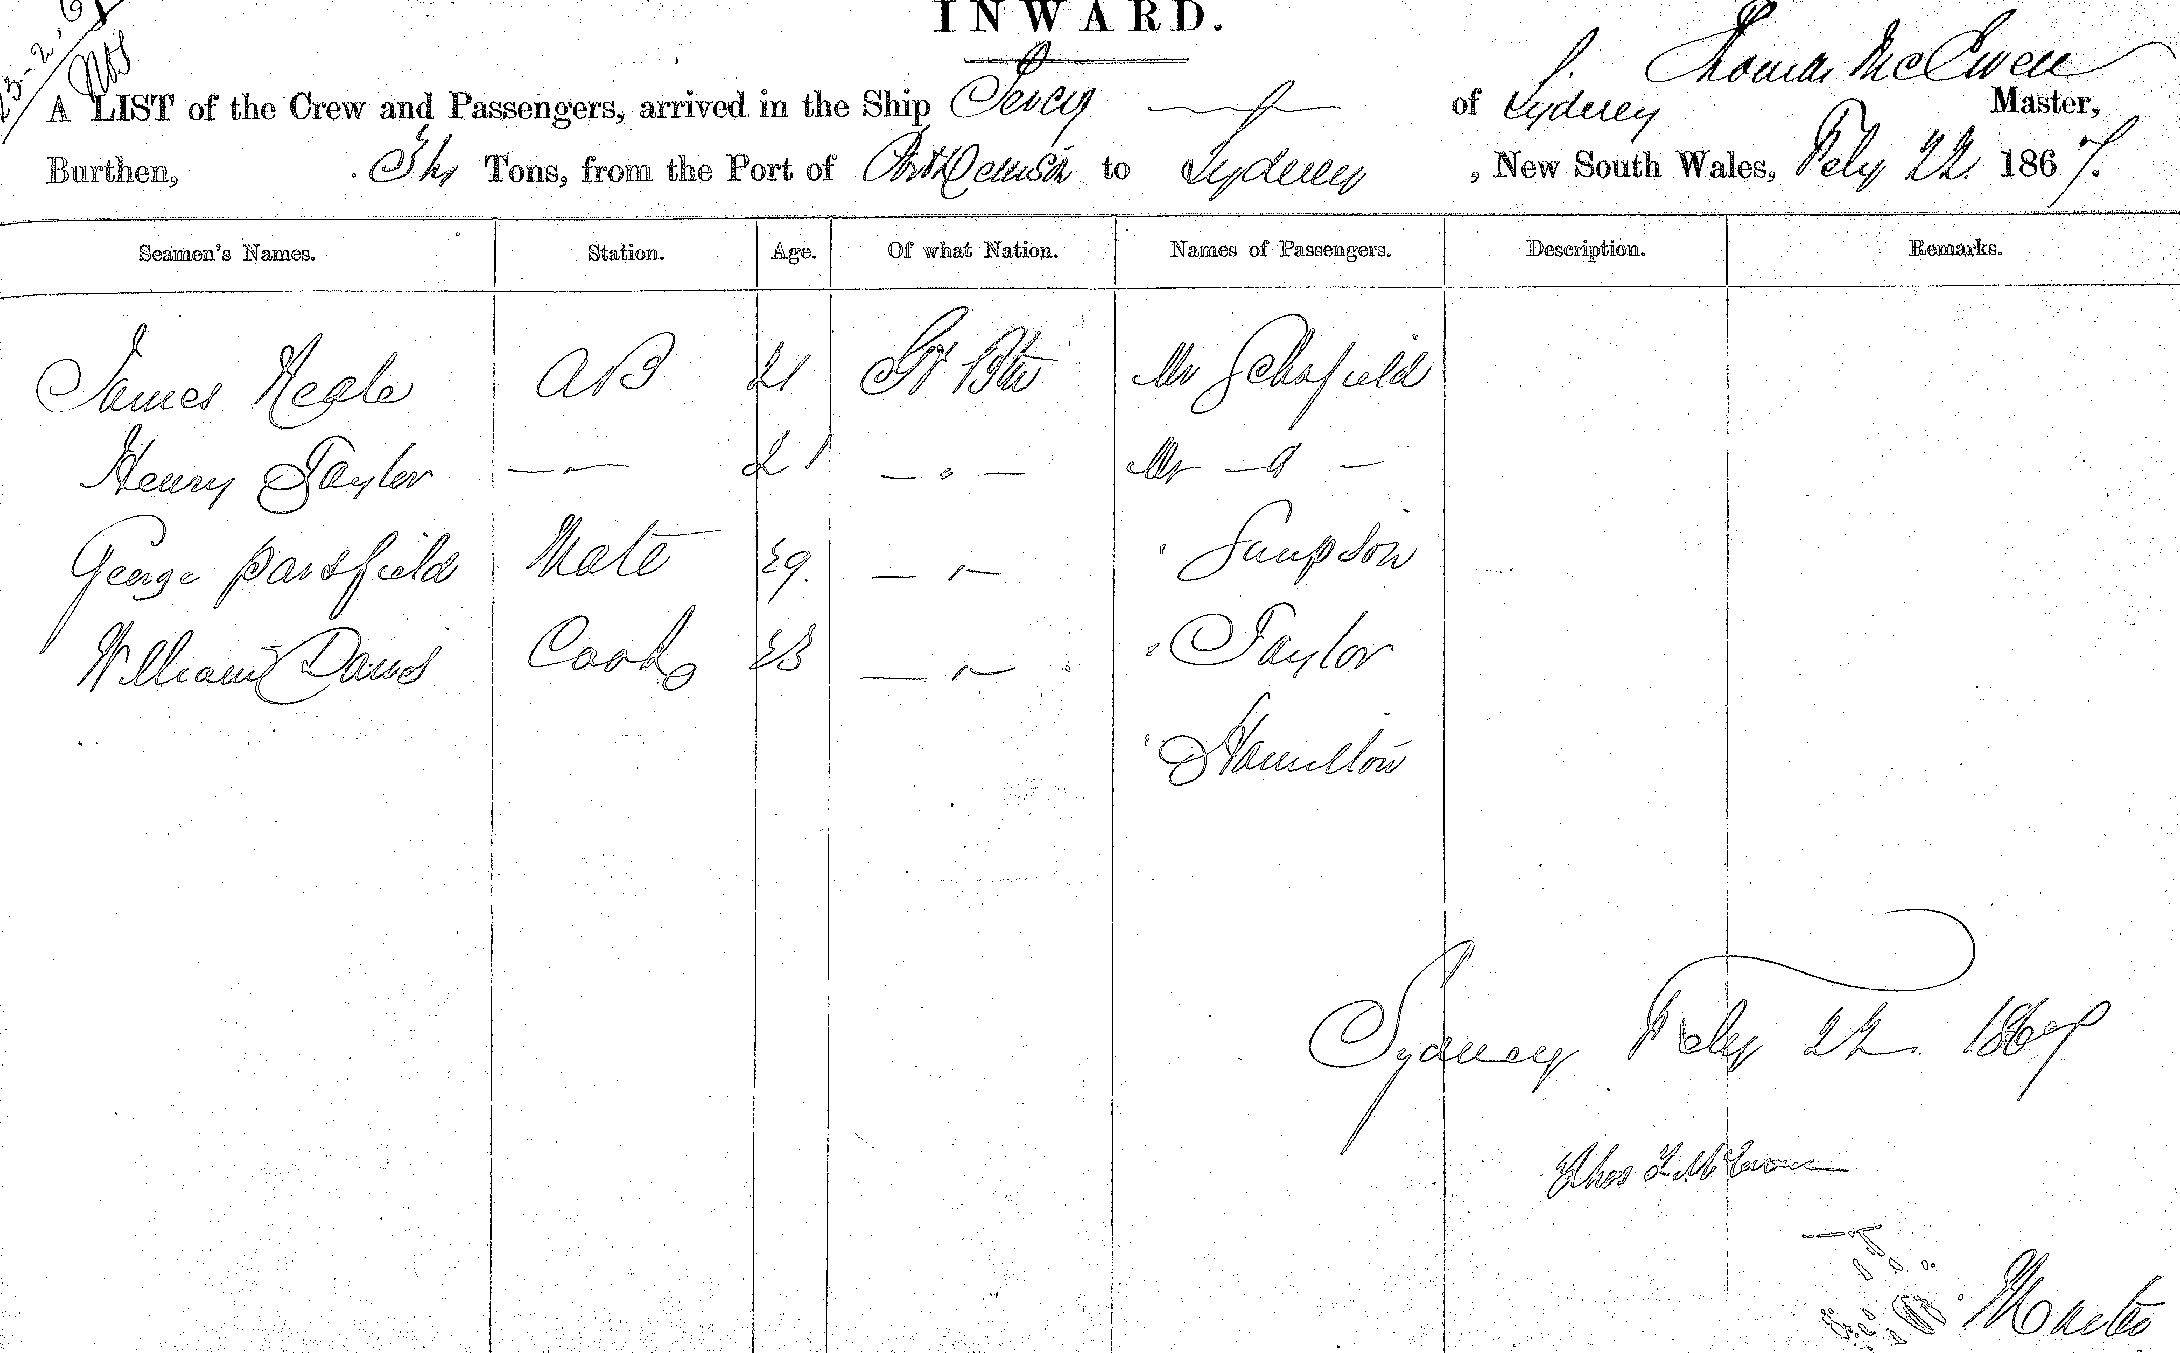 INWARD.
A LIST of the Crew and Passengers, arrived in the Ship Percy of Sydney Thomas McEwen Master,
Burthen, Tons, from the Port of Port Denison to Sydney, New South Wales, Feby 22 1867.
Seamen's Names. Station. Age. Of what Nation. Names of Passengers. Description. Remarks.
James Neale AB 21 Gt Btn Mr Schofield
Henry Taylor — 21 — " — Mr — " —
George Parsfield Mate 29. — " — " Sampson
William Davis Cook 23 — " — " Taylor
" Hamilton
Sydney Feby 22. 1867
Master